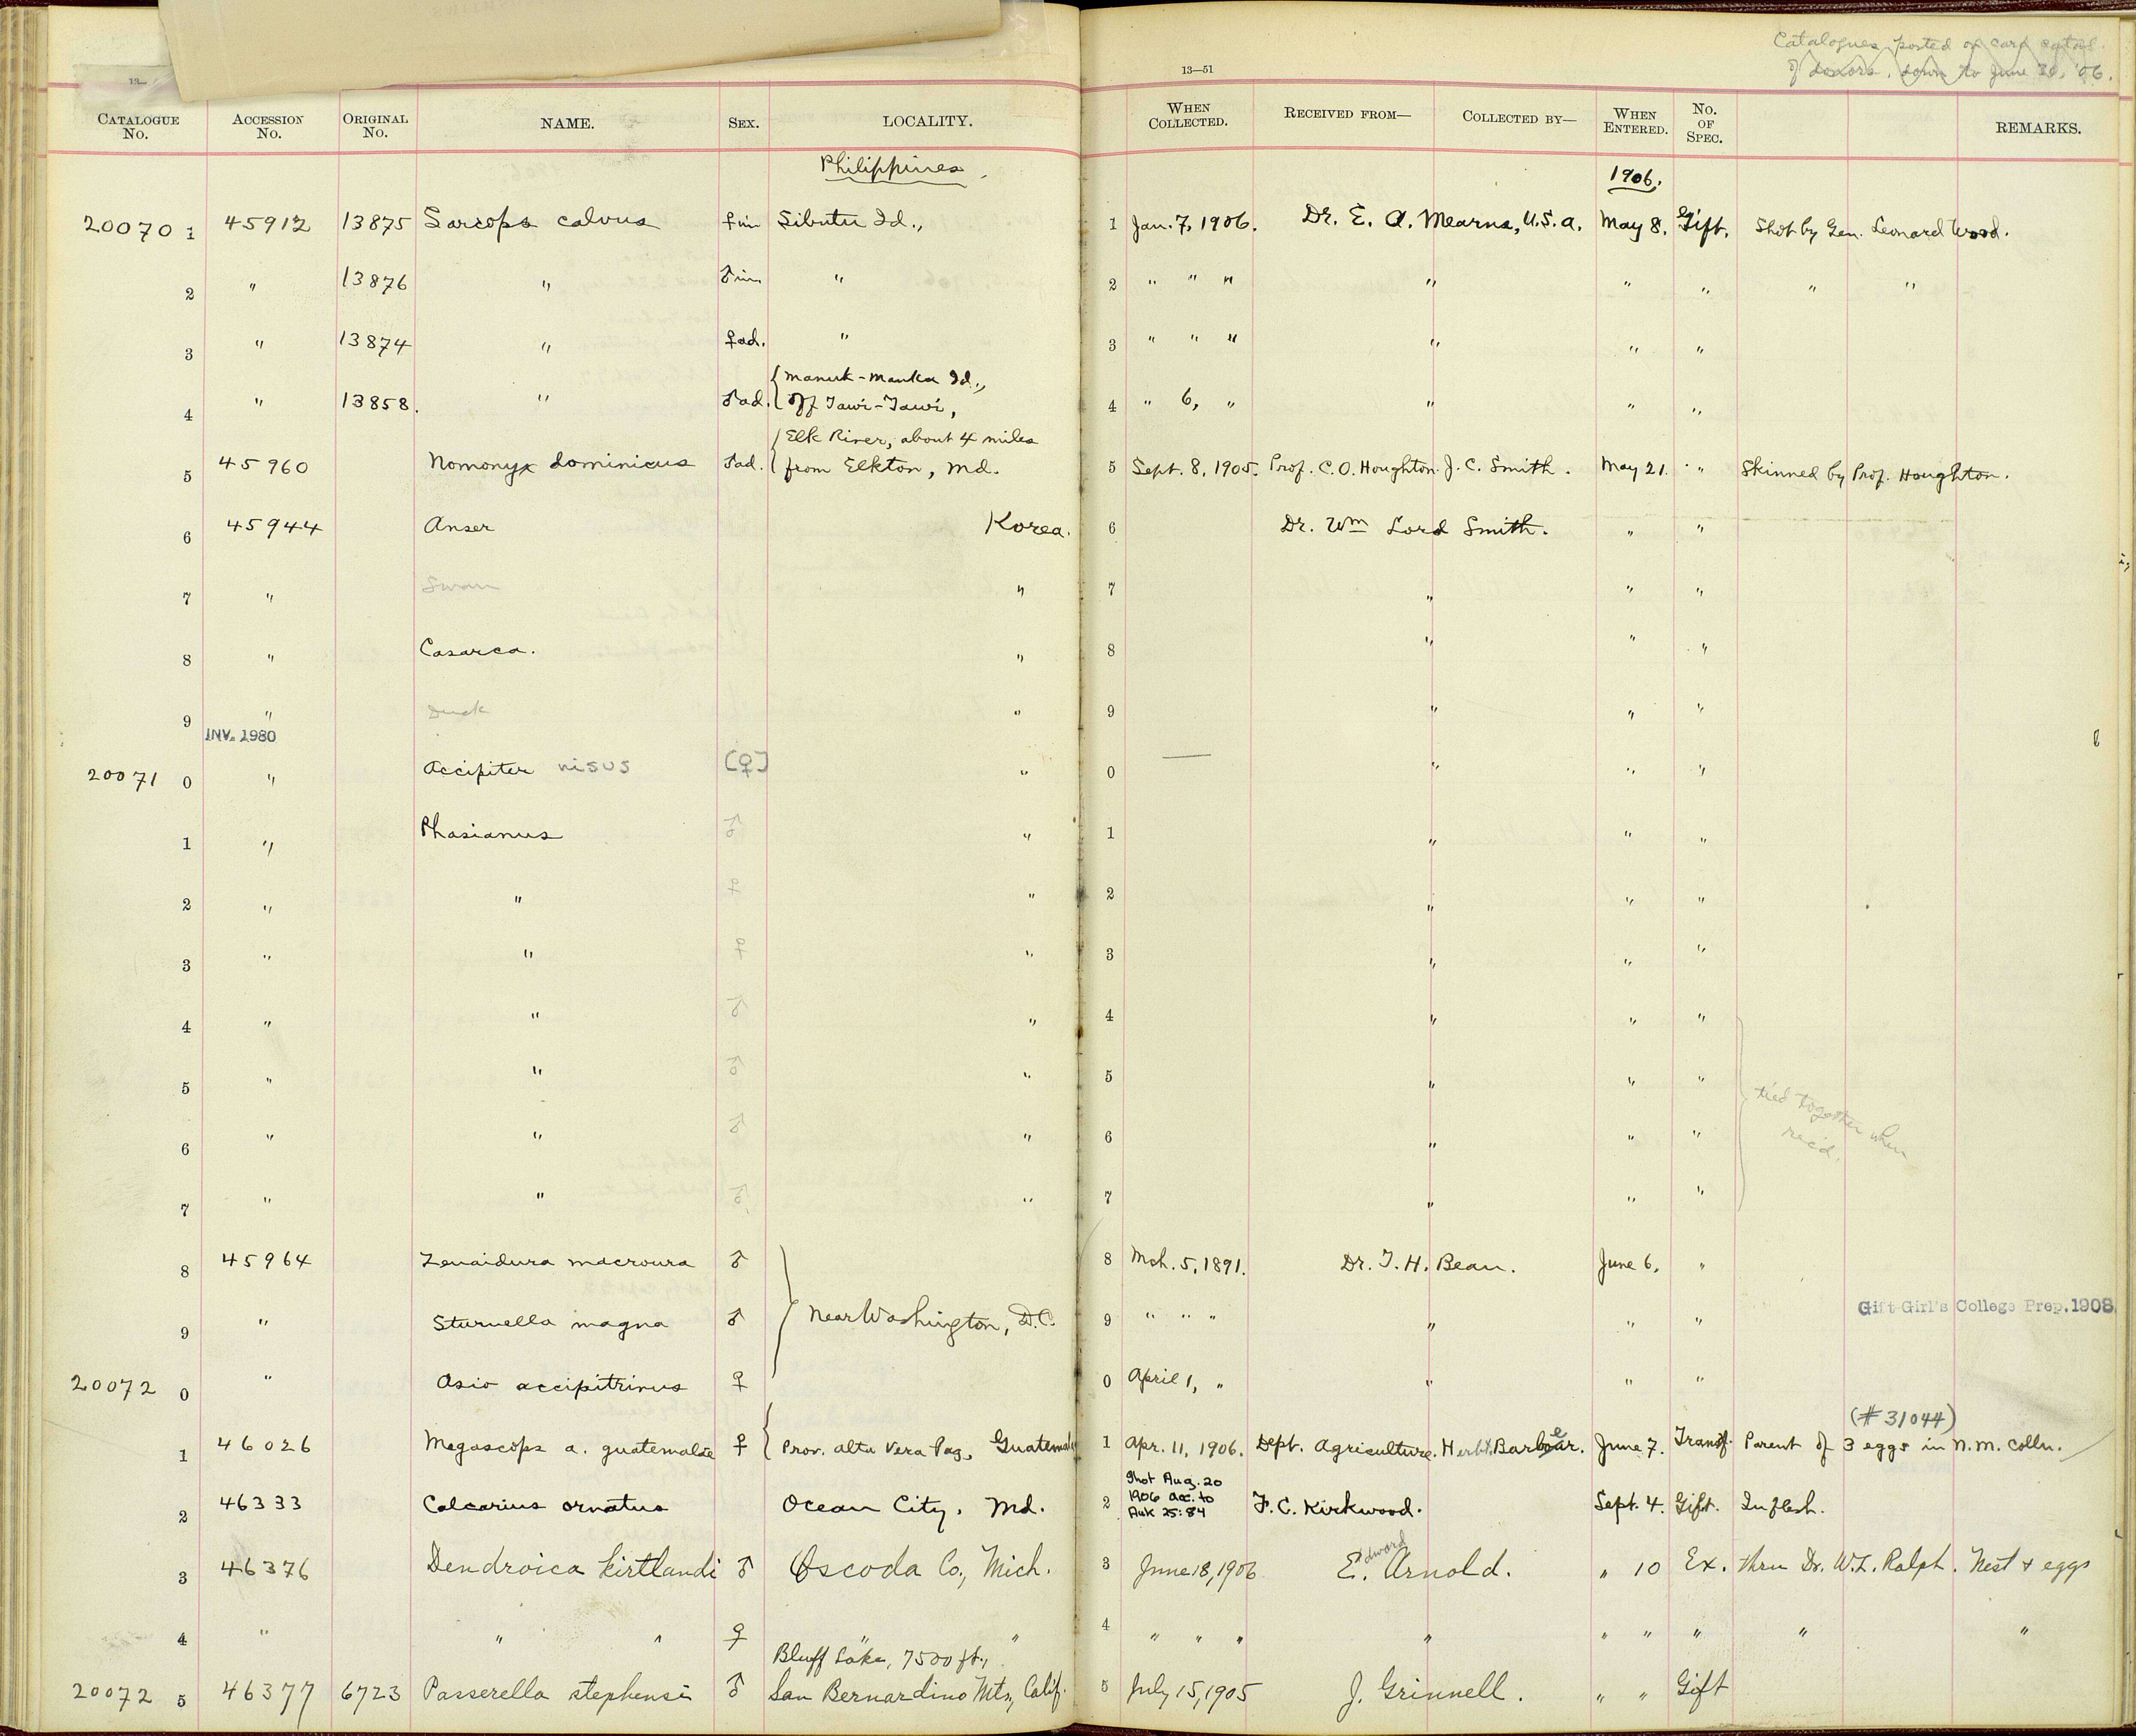 Catalogues posted on card catal.
of donors, down to June 30, '06.
13—
13—51
CATALOGUE No. ACCESSION No. ORIGINAL No. NAME. SEX. LOCALITY. WHEN COLLECTED. RECEIVED FROM— COLLECTED BY— WHEN ENTERED. No. OF SPEC. REMARKS.
Philippines 1906.
20070 1 45912 13875 Sarcops calvus ♀ im Sibutu Id., 1 Jan. 7, 1906. Dr. E. A. Mearns, U.S.A. May 8. Gift. Shot by Gen. Leonard Wood.
2 " 13876 " ♂ im " 2 " " " " " " " "
3 " 13874 " ♀ ad. " 3 " " " " " "
4 " 13858. " ♂ ad. { Manuk-Manka Id., off Tawi-Tawi, 4 " 6, " " " "
5 45960 Nomonyx dominicus ♂ ad. { Elk River, about 4 miles from Elkton, Md. 5 Sept. 8, 1905. Prof. C. O. Houghton. J. C. Smith. May 21. " Skinned by Prof. Houghton.
6 45944 Anser Korea. 6 Dr. Wm Lord Smith. " "
7 " Swan " 7 " " "
8 " Casarca. " 8 " " "
9 " Duck " 9 " " "
INV. 1980
20071 0 " Accipiter nisus [♀] " 0 — " " "
1 " Phasianus ♂ " 1 " " "
2 " " ♀ " 2 " " "
3 " " ♀ " 3 " " "
4 " " ♂ " 4 " " "
5 " " ♂ " 5 " " " tied together when
6 " " ♂ " 6 " " " rec'd.
7 " " ♂ " 7 " " "
8 45964 Zenaidura macroura ♂ 8 Mch. 5, 1891. Dr. T. H. Bean. June 6. "
9 " Sturnella magna ♂ } Near Washington, D.C. 9 " " " " " " Gift Girl's College Prep. 1908
20072 0 " Asio accipitrinus ♀ 0 April 1, " " " "
(#31044)
1 46026 Megascops a. guatemalae ♀ { Prov. alta Vera Paz, Guatemala 1 Apr. 11, 1906. Dept. Agriculture. Herbt. Barber. June 7. Transf. Parent of 3 eggs in N.M. colln.
2 46333 Calcarius ornatus Ocean City, Md. 2 Shot Aug. 20 1906 acc. to Auk 25:84 F. C. Kirkwood. Sept. 4. Gift. In flesh.
3 46376 Dendroica kirtlandi ♂ Oscoda Co., Mich. 3 June 18, 1906 Edward Arnold. " 10 Ex. thru Dr. W. L. Ralph. Nest & eggs
4 " " " ♀ " " 4 " " " " " " " " "
Bluff Lake, 7500 ft.,
20072 5 46377 6723 Passerella stephensi ♂ San Bernardino Mts, Calif. 5 July 15, 1905 J. Grinnell. " " Gift